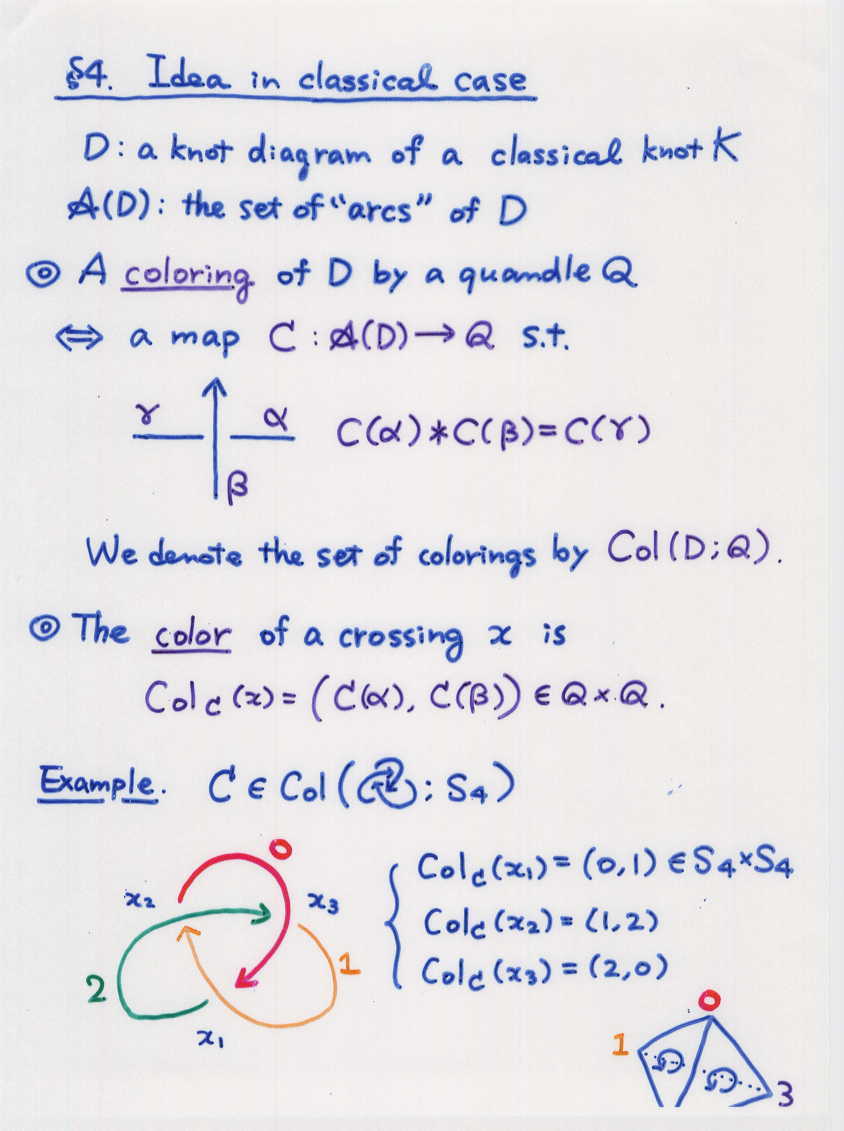 §4. Idea in classical case
D: a knot diagram of a classical knot K
A(D): the set of "arcs" of D
◎ A coloring of D by a quandle Q
⇔ a map C : A(D) → Q s.t.
γ α C(α) * C(β) = C(γ)
β
We denote the set of colorings by Col(D; Q).
◎ The color of a crossing x is
Col_C(x) = (C(α), C(β)) ∈ Q × Q.
Example. C ∈ Col( ; S₄)
0
x₂ x₃
2 1
x₁
Col_C(x₁) = (0,1) ∈ S₄×S₄
Col_C(x₂) = (1,2)
Col_C(x₃) = (2,0)
0
1
3